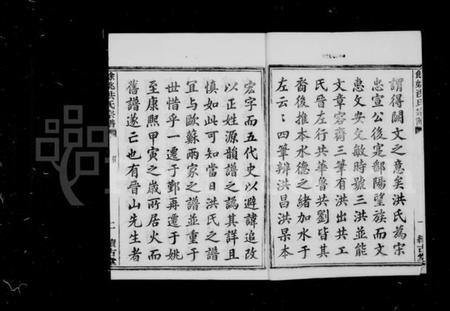 謂得闕文之意矣洪氏為宋
忠宣公後寔鄱陽望族而文
惠文安文敏時號三洪並能
文章容齋三筆有洪出共工
氏晉左行共華魯共劉皆其
裔後推本水德之緒加水于
左云云四筆辨洪昌洪杲本
宏字而五代史以避諱追改
以正姓源韻譜之誤其詳且
慎如此可知當日洪氏之譜
宜與歐蘇兩家之譜並重于
世惜乎一遷于鄞再遷于姚
至康熙甲寅之歲所居火而
舊譜遂亡也有晉山先生者
餘姚洪氏宗譜
一
餘姚洪氏宗譜
二